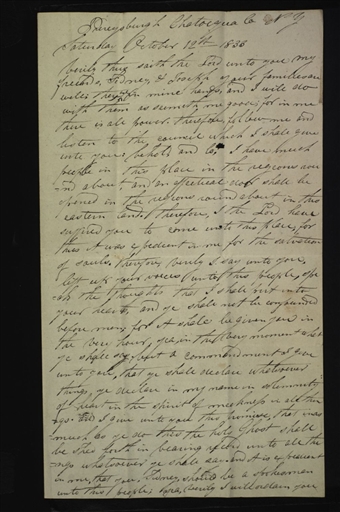 Perrysburgh Chatocqua Co N Y
Saturday October 12th 1833
verily thus saith the Lord unto you my
friends, Sidney, & Joseph your families are
well they are in mine hands, and I will do
with them as seemeth me good, for in me
there is all power. therefore follow me and
listen to the council which I shall give
unto you, behold and lo, I have much
people in this place in the regions rou
nd about, and an effectual door shall be
opened in the regions round about in this
eastern land therefore, I the Lord have
suffered you to come unto this place, for
thus it was expedient in me for the salvation
of souls, therefore verily I say unto you,
lift up your voices unto this people, spe
ak the thoughts that I shall put into
your hearts, and ye shall not be confounded
before men, for it shall be given you in
the very hour, yea, in the very moment what
ye shall say, but a commandment I give
unto you, that ye shall declare whatsoever
things, ye declare in my name in solemnity
of heart in the spirit of meekness in all thin
gs and I give unto you this promise, that inas
much as ye do this the holy Ghost shall
be shed forth in bearing record unto all thi
ngs whatsoever ye shall say, and it is expedient
in me, that you, Sidney, should be a spokesman
unto this people, yea, verily I will ordain you